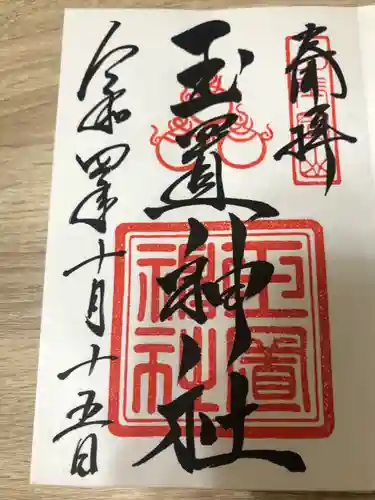 奉拝
玉置神社
令和四年十月十五日
玉置
神社